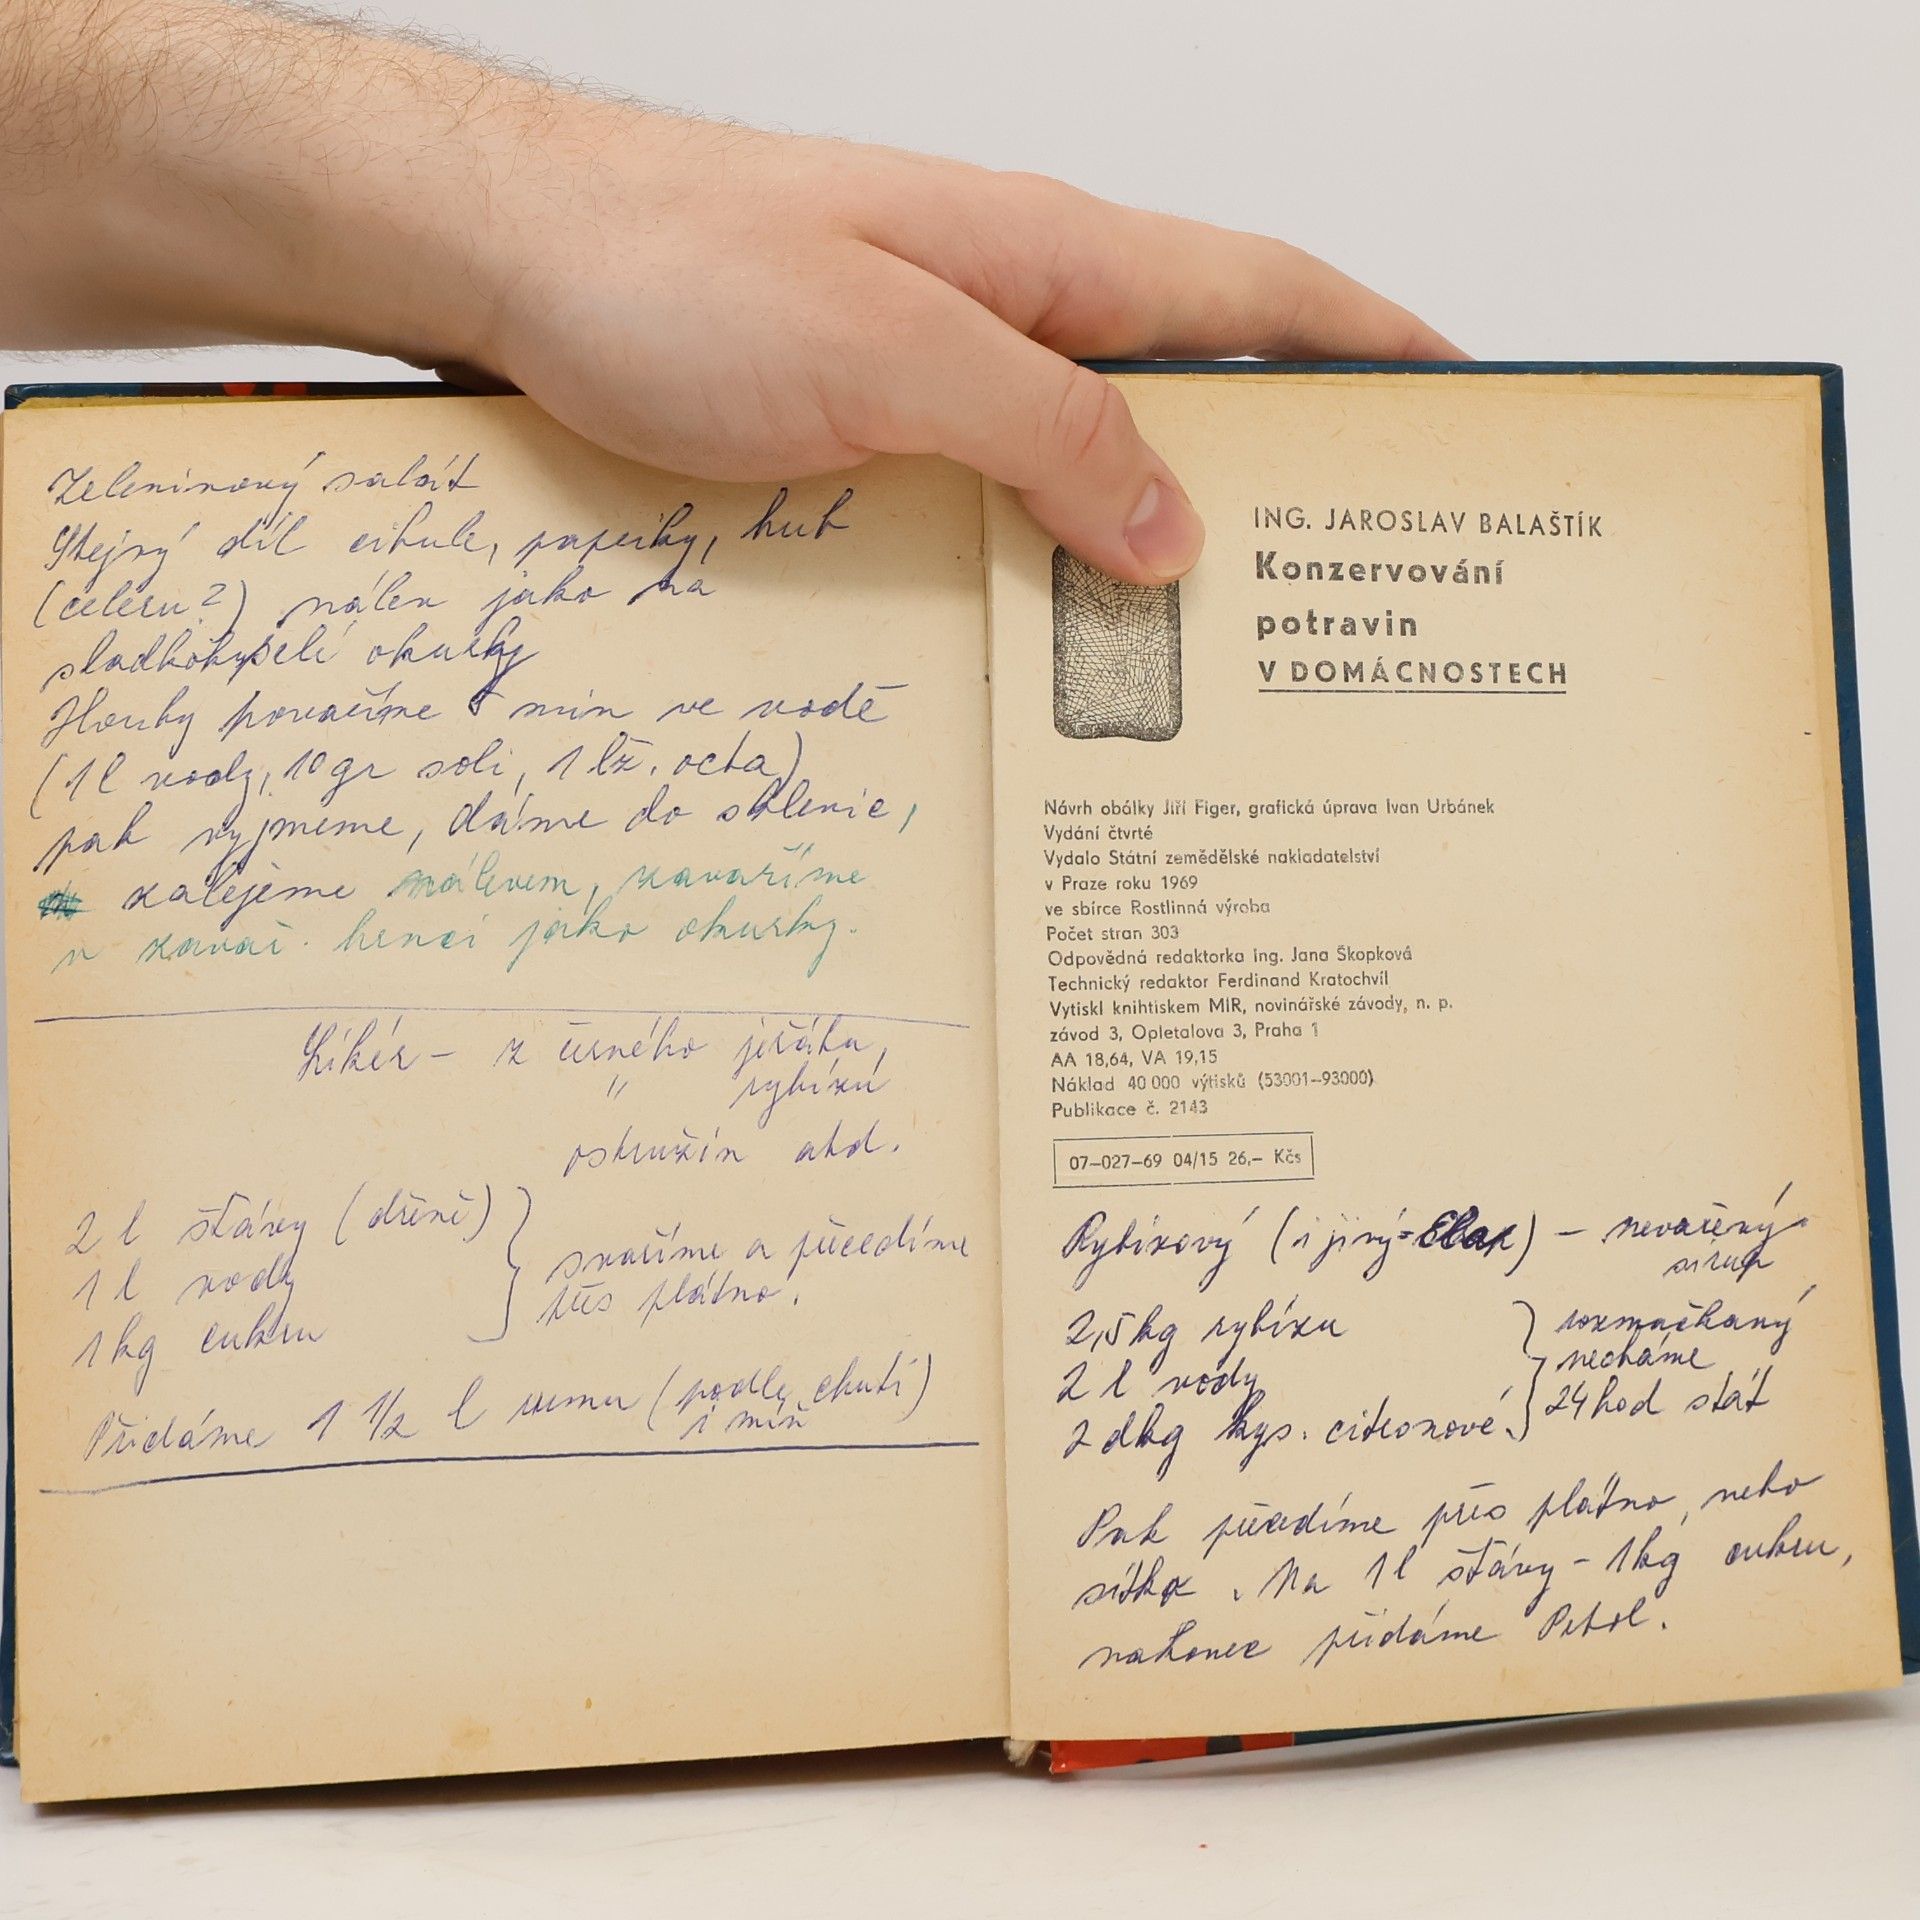 Zeleninový salát
Stejný díl cibule, papriky, hub
(celeru?) nálev jako na
sladkokyselé okurky
Houby povaříme 5 min ve vodě
(1 l vody, 10 gr soli, 1 lž. octa)
pak vyjmeme, dáme do sklenic,
zalejeme nálevem, zavaříme
v zavař. hrnci jako okurky.
Likér - z černého jeřábu,
" rybízu
ostružin atd.
2 l šťávy (dřeně)
1 l vody
1 kg cukru
svaříme a přecedíme
přes plátno.
Přidáme 1 1/2 l rumu (podle chuti)
i míň
ING. JAROSLAV BALAŠTÍK
Konzervování
potravin
V DOMÁCNOSTECH
Návrh obálky Jiří Figer, grafická úprava Ivan Urbánek
Vydání čtvrté
Vydalo Státní zemědělské nakladatelství
v Praze roku 1969
ve sbírce Rostlinná výroba
Počet stran 303
Odpovědná redaktorka ing. Jana Škopková
Technický redaktor Ferdinand Kratochvíl
Vytiskl knihtiskem MIR, novinářské závody, n. p.
závod 3, Opletalova 3, Praha 1
AA 18,64, VA 19,15
Náklad 40 000 výtisků (53001–93000)
Publikace č. 2143
07–027–69 04/15 26,– Kčs
Rybízový (i jiný) – nevařený
sirup
2,5 kg rybízu
2 l vody
2 dkg kys. citronové.
rozmačkaný
necháme
24 hod stát
Pak přecedíme přes plátno, nebo
sítko. Na 1 l šťávy – 1 kg cukru,
nakonec přidáme Petol.